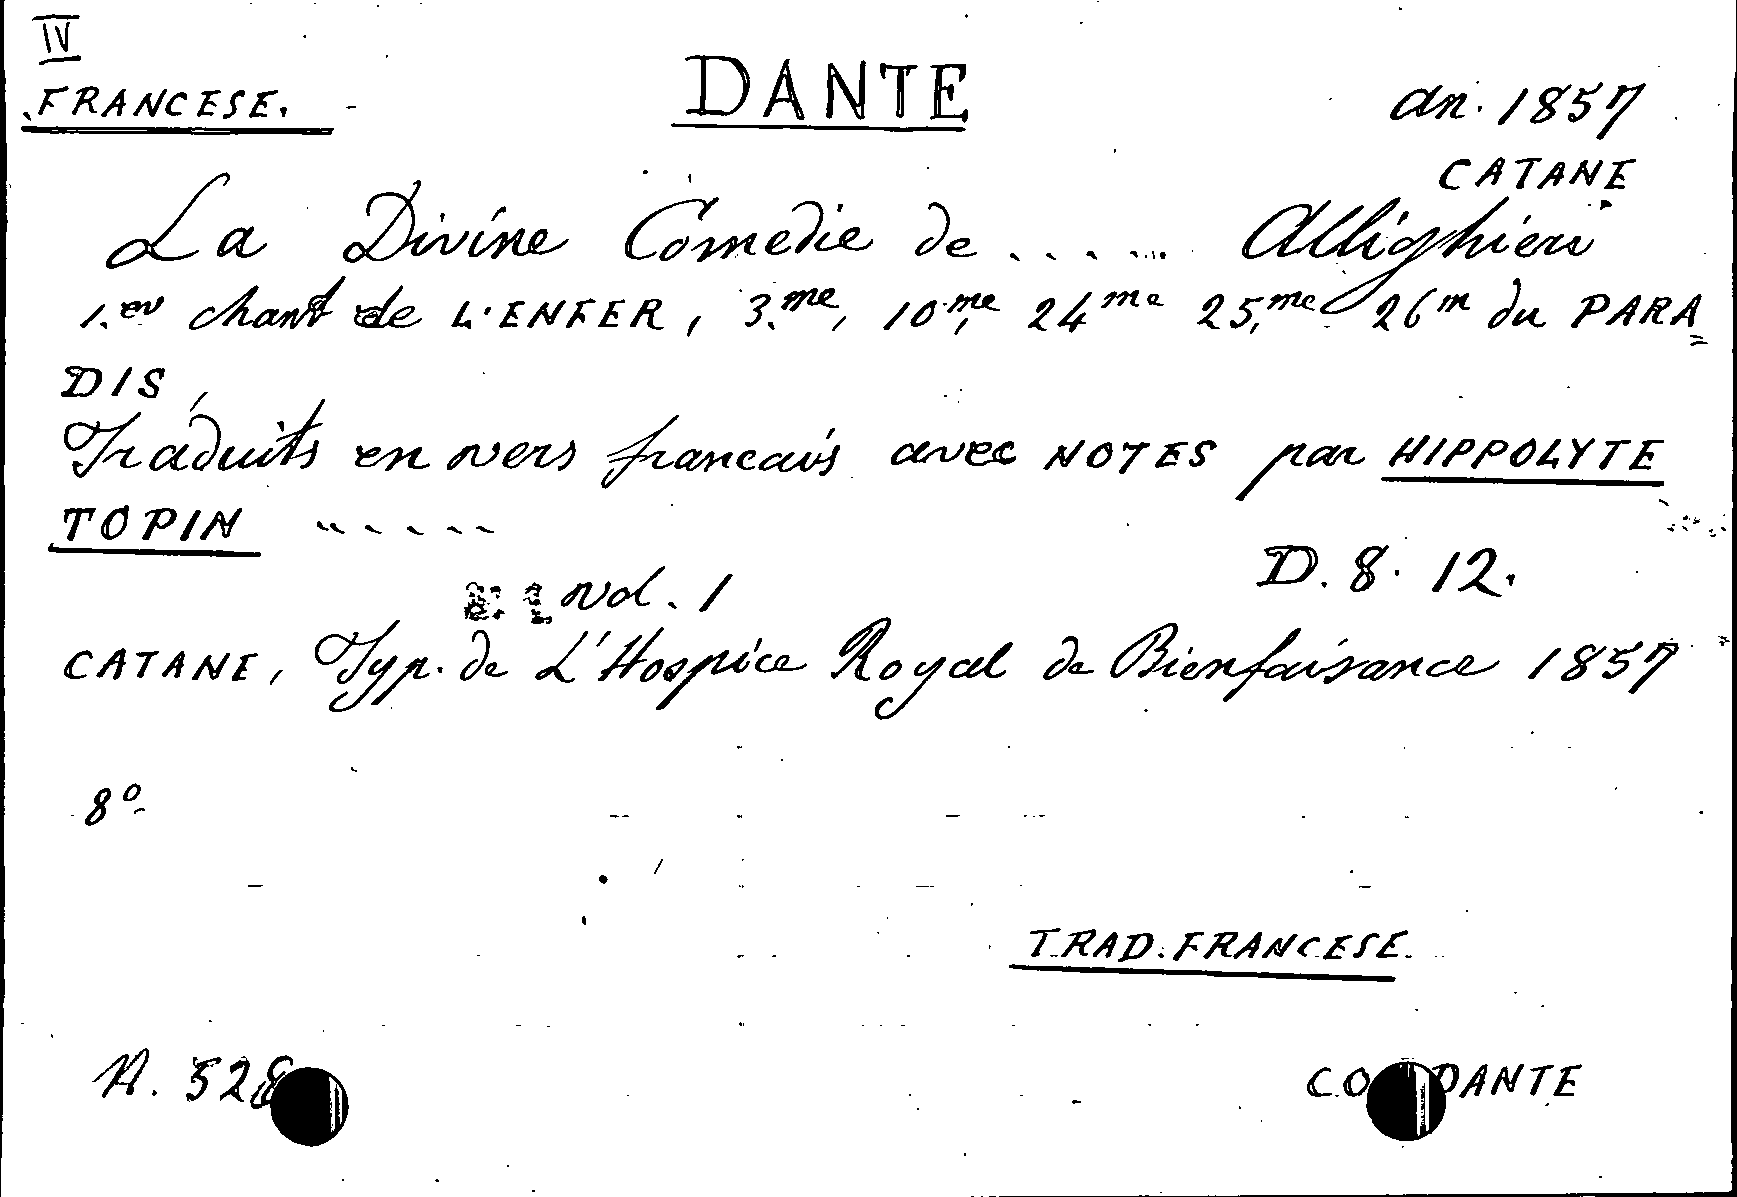 IV
FRANCESE.
DANTE
an. 1857
CATANE
La Divine Comedie de ...... Allighieri
1.er chant de L'ENFER, 3.me, 10.me, 24me 25.me 26m du PARA=
DIS,
Traduits en vers francais avec NOTES par HIPPOLYTE
TOPIN - - - - -
D. 8. 12.
vol. 1
CATANE, Typ. de L'Hospice Royal de Bienfaisance 1857
8º
TRAD. FRANCESE.
N. 528
DANTE